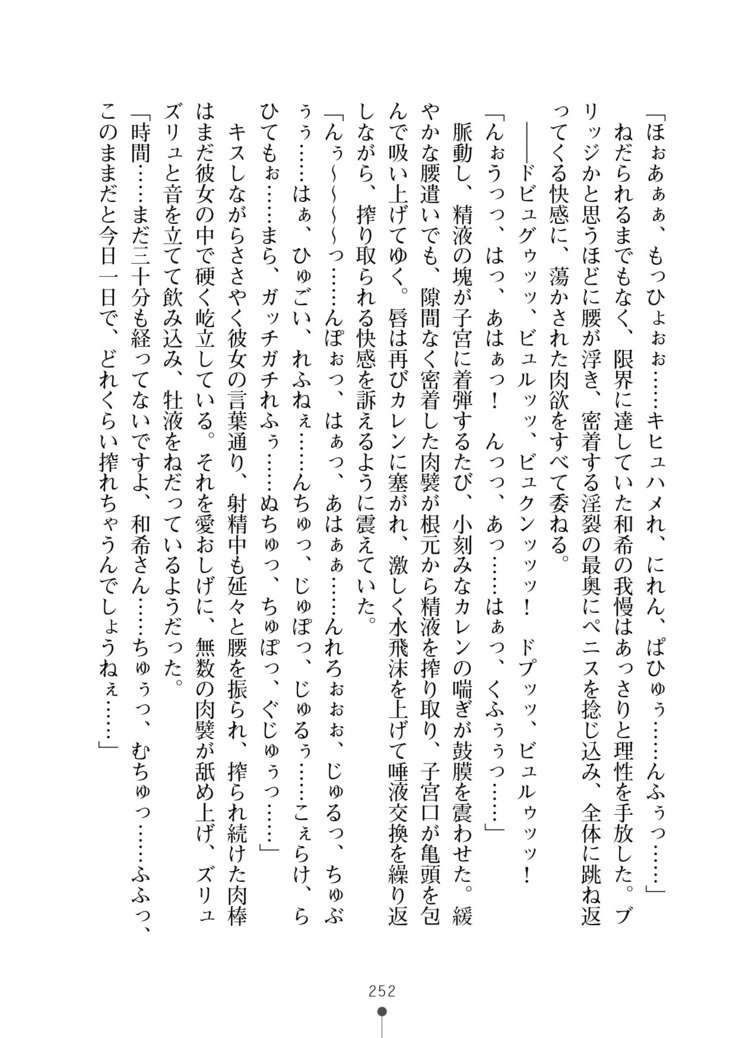 「ほぉあぁぁ、もっひょぉぉ……キヒュハメれ、にれん、ぱひゅぅ……んふぅっ……」
　ねだられるまでもなく、限界に達していた和希の我慢はあっさりと理性を手放した。ブ
リッジかと思うほどに腰が浮き、密着する淫裂の最奥にペニスを捻じ込み、全体に跳ね返
ってくる快感に、蕩かされた肉欲をすべて委ねる。
　――ドビュグゥッッ、ビュルッッ、ビュクンッッッ！　ドプッッ、ビュルゥッッ！
「んぉうっっ、はっ、あはぁっ！　んっっ、あっ……はぁっ、くふぅぅっ……」
　脈動し、精液の塊が子宮に着弾するたび、小刻みなカレンの喘ぎが鼓膜を震わせた。緩
やかな腰遣いでも、隙間なく密着した肉襞が根元から精液を搾り取り、子宮口が亀頭を包
んで吸い上げてゆく。唇は再びカレンに塞がれ、激しく水飛沫を上げて唾液交換を繰り返
しながら、搾り取られる快感を訴えるように震えていた。
「んぅ～～～～っ……んぽぉっ、はぁっ、あはぁぁ……んれろぉぉぉ、じゅるっ、ちゅぶ
ぅぅ……はぁ、ひゅごい、れふねぇ……んちゅっ、じゅぽっ、じゅるぅ……こぇらけ、ら
ひてもぉ……まら、ガッチガチれふぅ……ぬちゅっ、ちゅぽっ、ぐじゅぅっ……」
　キスしながらささやく彼女の言葉通り、射精中も延々と腰を振られ、搾られ続けた肉棒
はまだ彼女の中で硬く屹立している。それを愛おしげに、無数の肉襞が舐め上げ、ズリュ
ズリュと音を立てて飲み込み、牡液をねだっているようだった。
「時間……まだ三十分も経ってないですよ、和希さん……ちゅぅっ、むちゅっ……ふふっ、
このままだと今日一日で、どれくらい搾れちゃうんでしょうねぇ……」
252